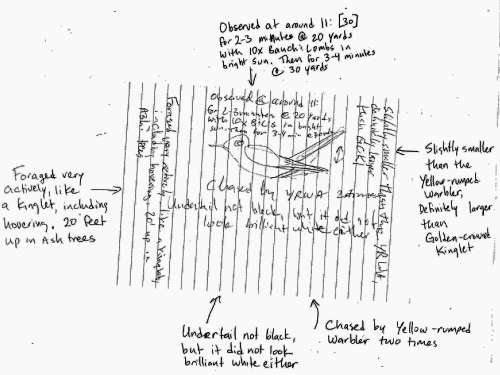 Observed at around 11: [30]
for 2-3 minutes @ 20 yards
with 10x Bauch; Lombs in
bright sun. Then for 3-4 minutes
@ 30 yards
Observed @ around 11:
with 10x
Chased by YRWA 2 times
Undertail not black, but it did not
look brilliant white either
Slightly smaller than the YRWA,
definitely larger
than GCKI
Foraged very actively, like a Kinglet,
including hovering, 20' up in
Ash trees
Foraged very
actively, like
a Kinglet, including
hovering, 20 feet
up in Ash trees
Slightly smaller
than the
Yellow-rumped
warbler,
Definitely larger
than
Golden-crowned
Kinglet
Undertail not black,
but it did not look
brilliant white either
Chased by Yellow-rumped
Warbler two times